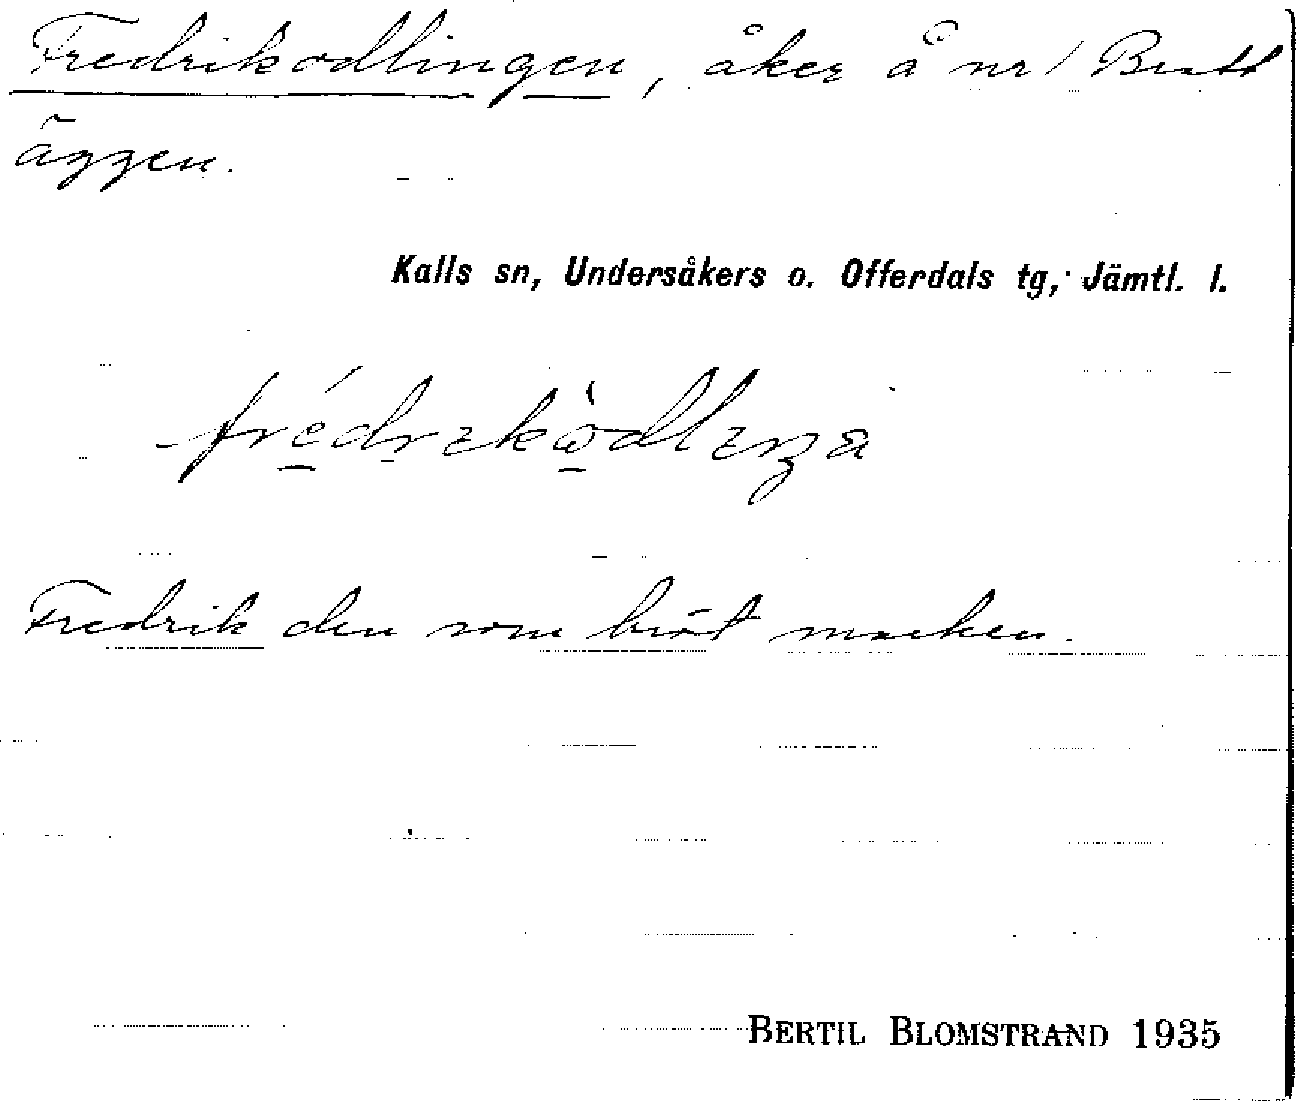 Fredrikodlingen, åker å nr 1 Bratt
äggen.
Kalls sn, Undersåkers o. Offerdals tg, Jämtl. l.
Fredrik den som bröt marken.
BERTIL BLOMSTRAND 1935